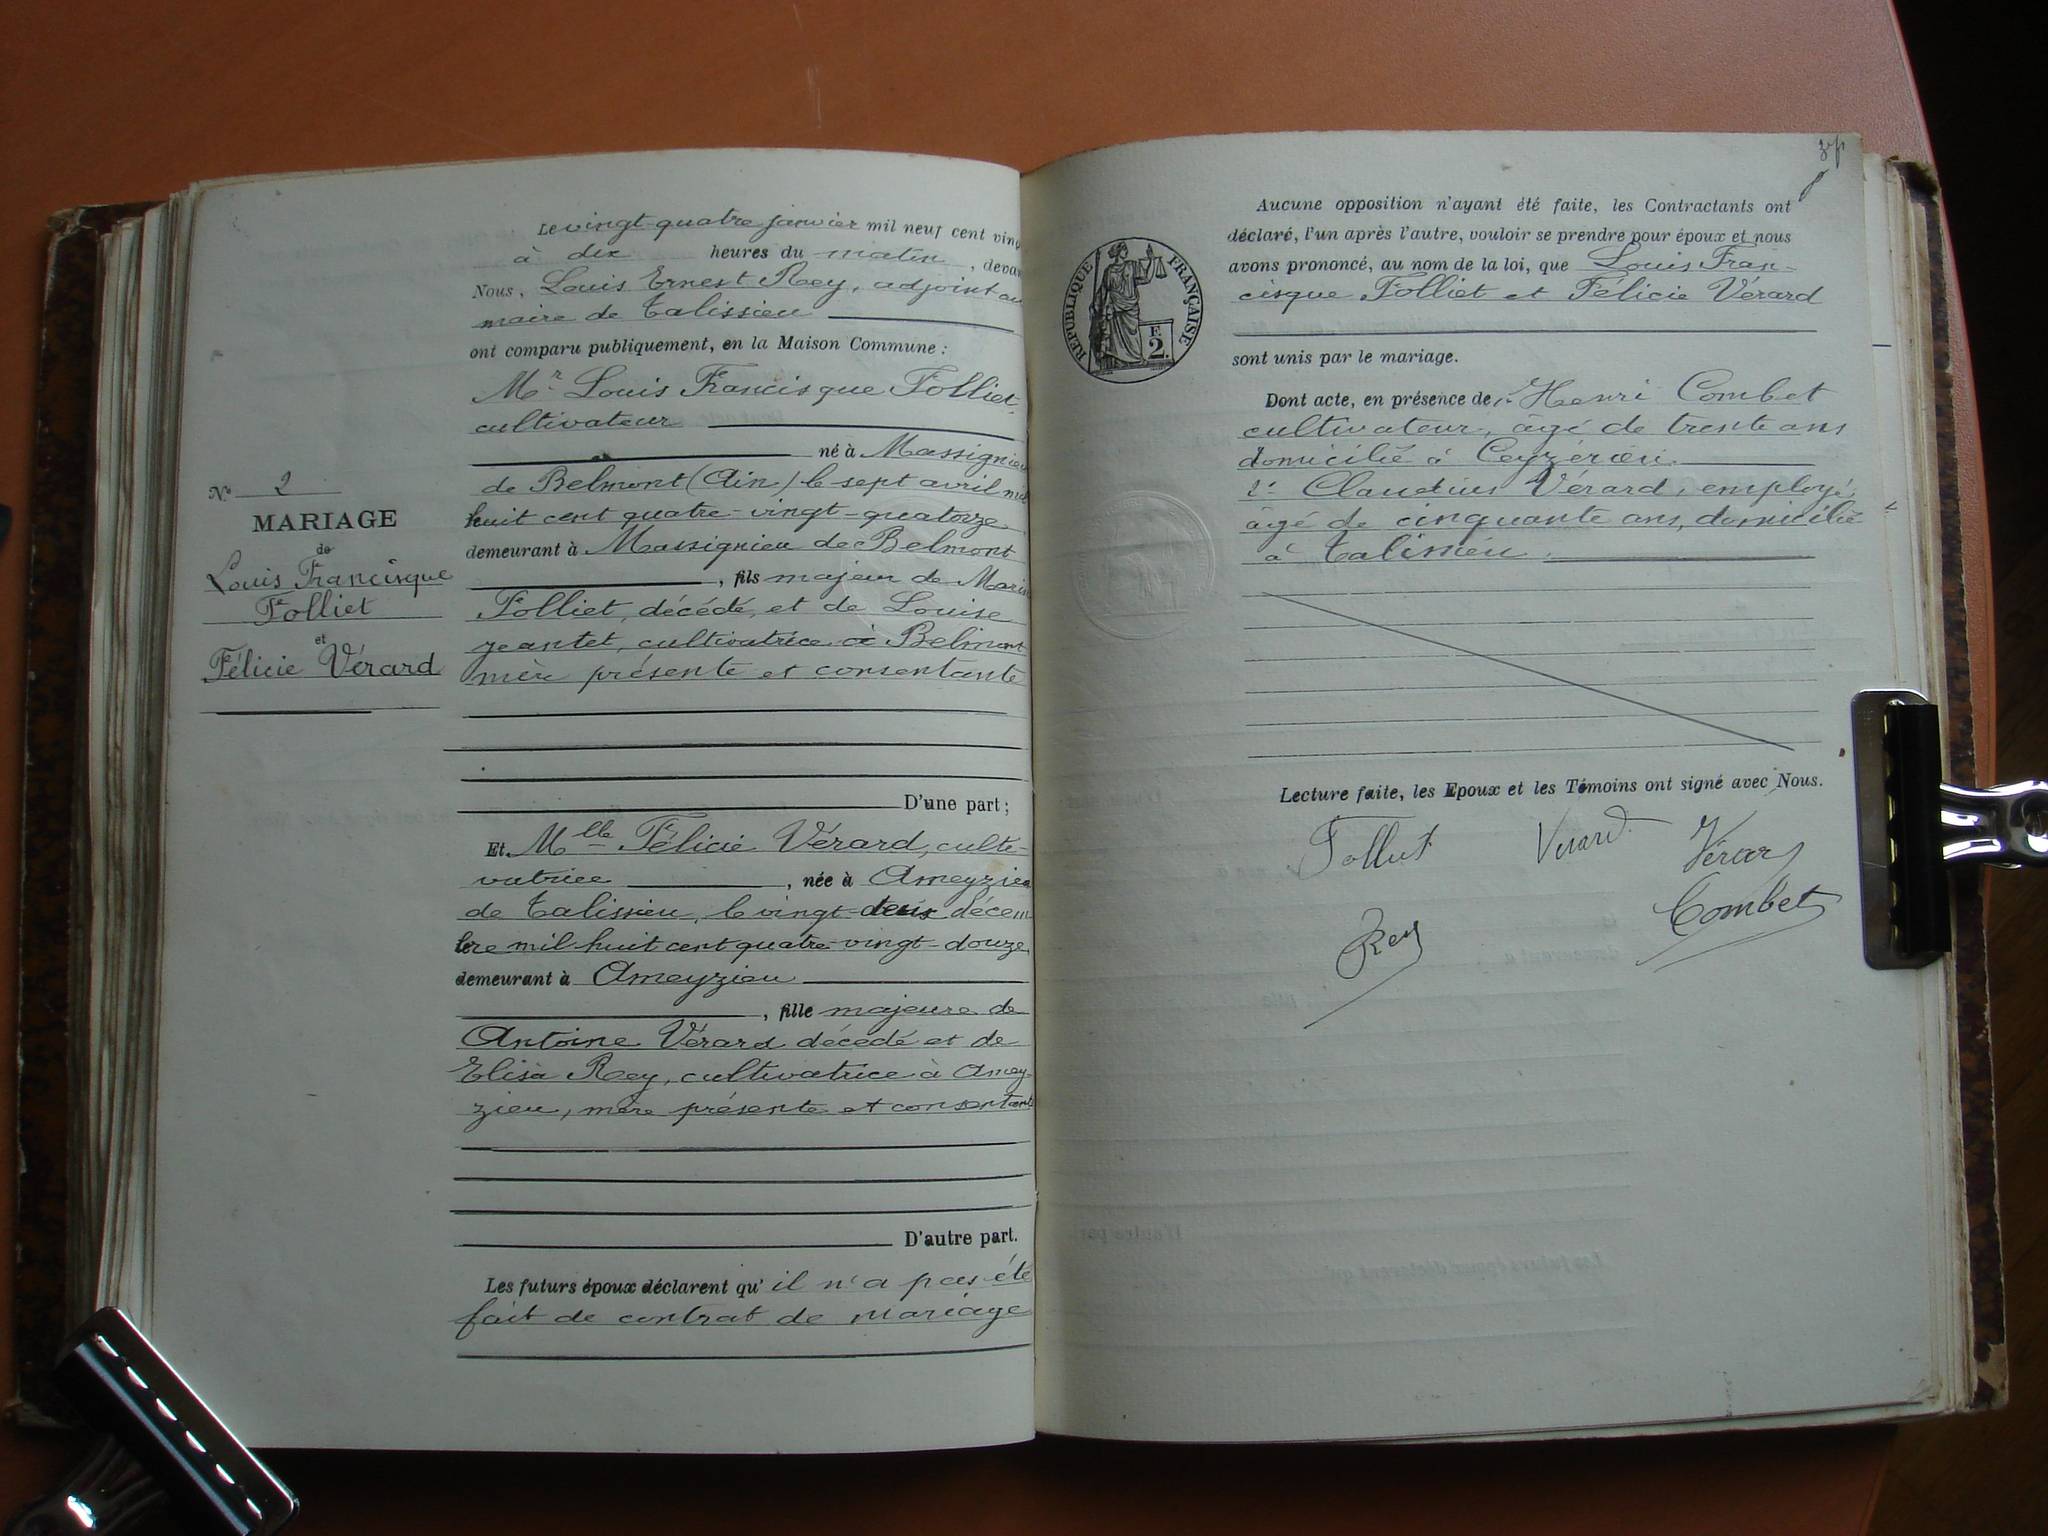 N° 2
MARIAGE
de
Louis Francisque
Folliet
et
Félicie Vérard
Le vingt-quatre janvier mil neuf cent ving
à dix heures du matin, devan
Nous, Louis Ernest Rey, adjoint au
maire de Talissieu
ont comparu publiquement, en la Maison Commune :
Mr Louis Francisque Folliet
cultivateur
né à Massignieu
de Belmont (Ain) le sept avril mil
huit cent quatre-vingt-quatorze
demeurant à Massignieu de Belmont
, fils majeur de Marin
Folliet, décédé, et de Louise
Jeantet, cultivatrice à Belmont
mère présente et consentante
D'une part ;
Et Mlle Félicie Vérard, culti-
vatrice, née à Ameyzieu
de Talissieu, le vingt-deux décem
bre mil-huit cent quatre-vingt-douze
demeurant à Ameyzieu
, fille majeure de
Antoine Vérard décédé et de
Elisa Rey, cultivatrice à Amey-
zieu, mère présente et consentante
D'autre part.
Les futurs époux déclarent qu'il n'a pas été
fait de contrat de mariage
Aucune opposition n'ayant été faite, les Contractants ont
déclaré, l'un après l'autre, vouloir se prendre pour époux et nous
avons prononcé, au nom de la loi, que Louis Fran-
cisque Folliet et Félicie Vérard
RÉPUBLIQUE FRANÇAISE
E
2.
sont unis par le mariage.
Dont acte, en présence de 1° Henri Combet
cultivateur, âgé de trente ans
domicilié à Ceyzérieu.
2° Claudius Vérard, employé,
âgé de cinquante ans, domicilié
à Talissieu.
Lecture faite, les Epoux et les Témoins ont signé avec Nous.
Folliet Verard Vérard
Rey Combet